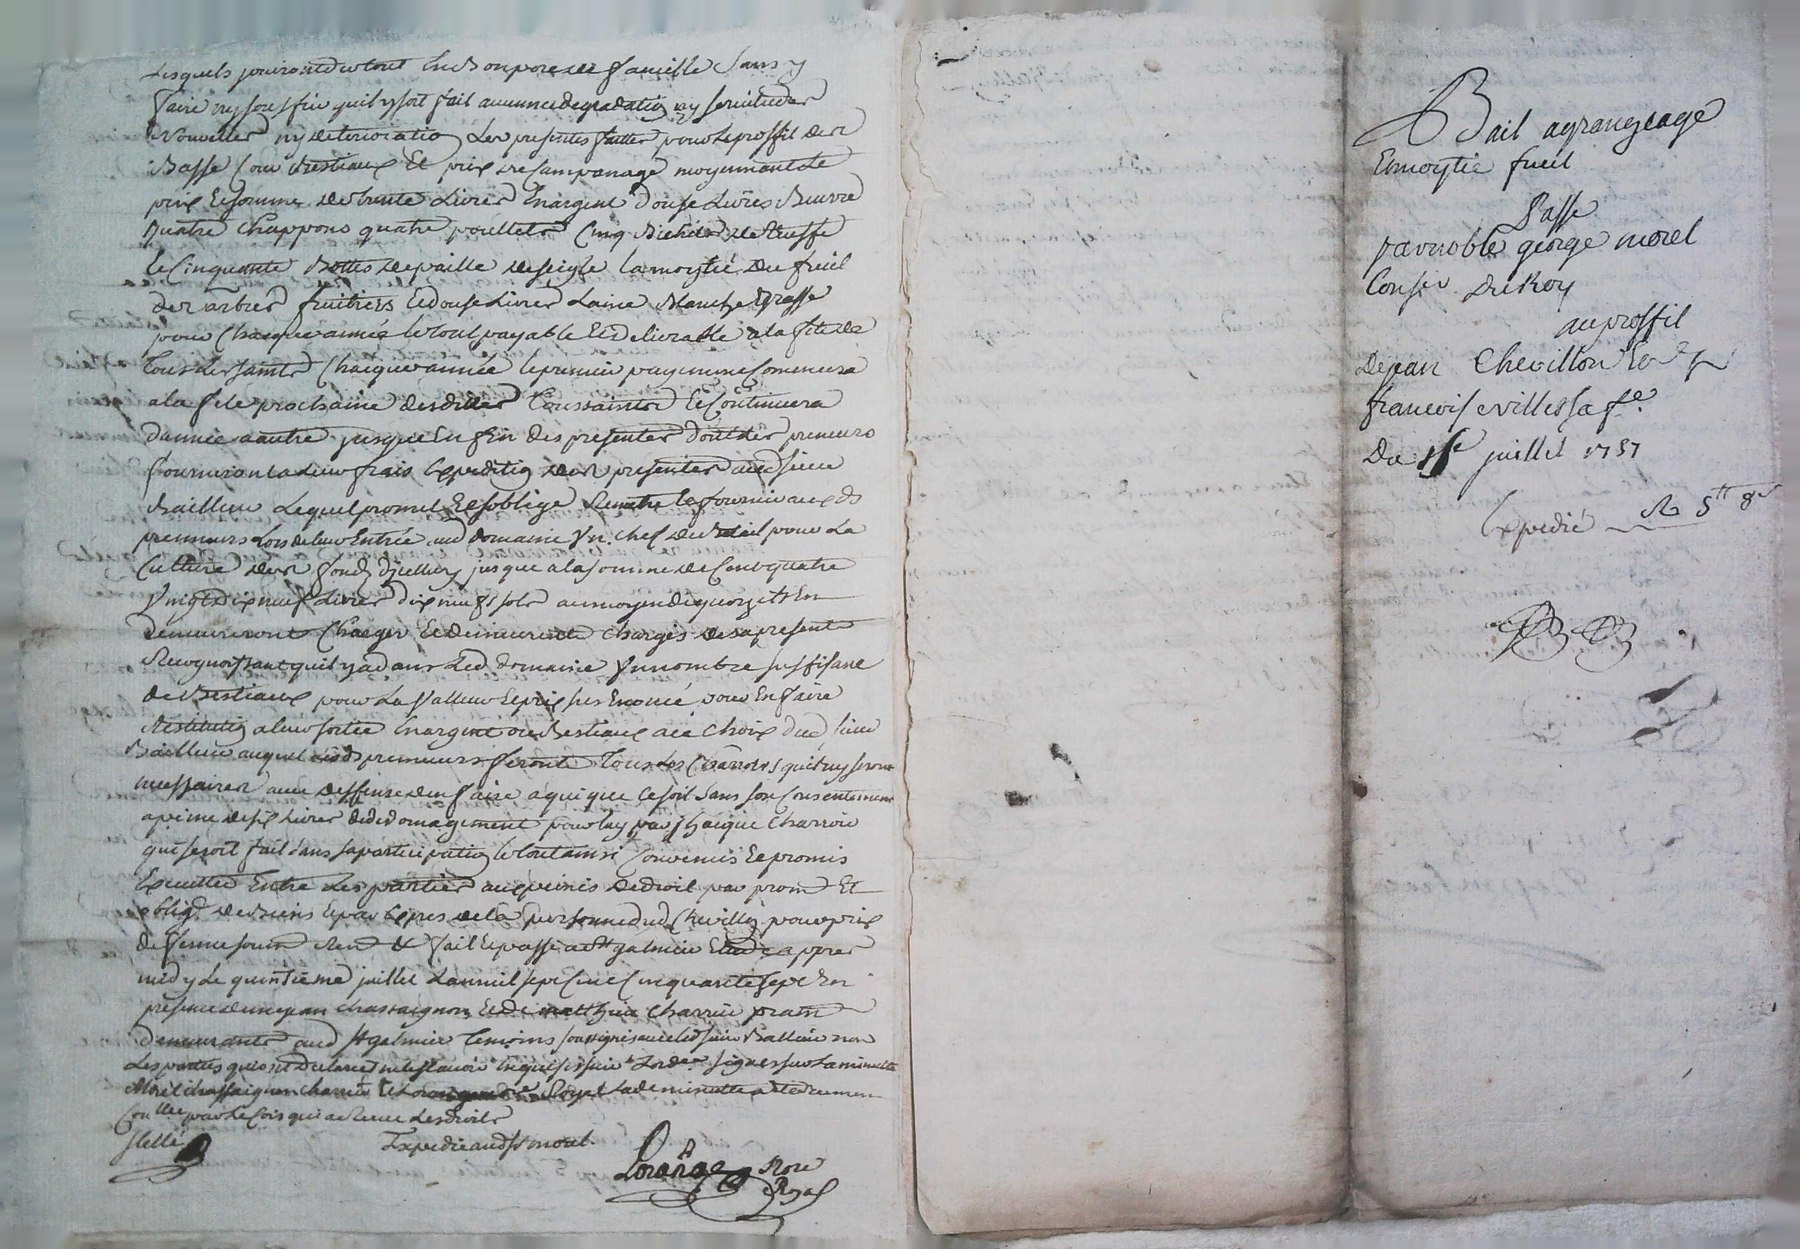 Lesquels jouiront du tout En Bon pere de famille Sans y
faire ny soufrir quil y soit fait aucunne degradation ny servitudes
Nouvelles ny deterioration Les presentes faittes pour le proffit de
Basse Cour Bestiaux Et prix de Campanage moyennant le
prix Et somme de trente Livres En argent Douse Livres Beurre
Quatre Chappons quatre poullets Cinq Bichets de truffe
Et Cinquante Bottes de paille de seigle la moytié du fruil
des arbres fruitiers Et douse Livres Laine Blanche Grasse
pour Chacque année le tout payable Et delivrable a la fete de
Tous les saints Chacque année le premier payment Comencera
a la fete prochaine desdites Toussaints Et Continuera
d'année a autre jusque En fin des presentes dont les preneurs
fourniront a Leurs frais Expedition des presentes aud sieur
Bailleur Lequel promet Et soblige Remettre Et fournir aux ds
preneurs Lors de leur Entrée aud domaine Un Chef de Betail pour La
Culture des fonds d'jcelluy jusque a la somme de Cent quatre
Vingt Dix neuf Livres dix neuf sols au moyen de quoy ils En
demeureront Charger Et demeurent Chargés des a present
Recognoissant quil y a dans Led domaine Un nombre suffisant
de Bestiaux pour La Valleur Et prix sus Enoncé pour En faire
Restitution a leur sortie En argent ou Bestiaux au Choix dud sieur
Bailleur auquel lesds preneurs feront Tous Les Charrois qui luy seront
necessaires avec deffense den faire a qui que Ce soit Sans son Consentement
a peine de six Livres de dedomagement pour luy par Chacque Charroir
qui seroit fait sans sa participation le tout ainsi Convenus Et promis
Executter Entre Les parties aux peines de droit par prom Et
oblig de Biens Et par Expres de la personne dud Chevillon pour prix
de ferme soum Ren & fait Et passé a St galmier Etude apres
midy Le quinsieme juillet L'an mil sept Cent Cinquante Sept En
presence de jean chassaignon Et de matthieu Charrin prat
demeurants aud St galmier temoins soussignés avec led sieur Bailleur non
Les parties qui ont declaré ne le sçavoir Enquis signés sur La minutte
Morel chassaignon charrin Et Lorange Royal La de minutte
Con lée par Le Cois qui a Receu Les droits
Scellé Expedié aud sr morel.
Lorange Nore
Royal
Bail a grangeage
Et moytie fueil
Passé
par noble george morel
Conser du Roy
au proffil
De jean Chevillon Et
francoise villes sa fe.
Du 15e juillet 1757
Expedié R 5tt 8s